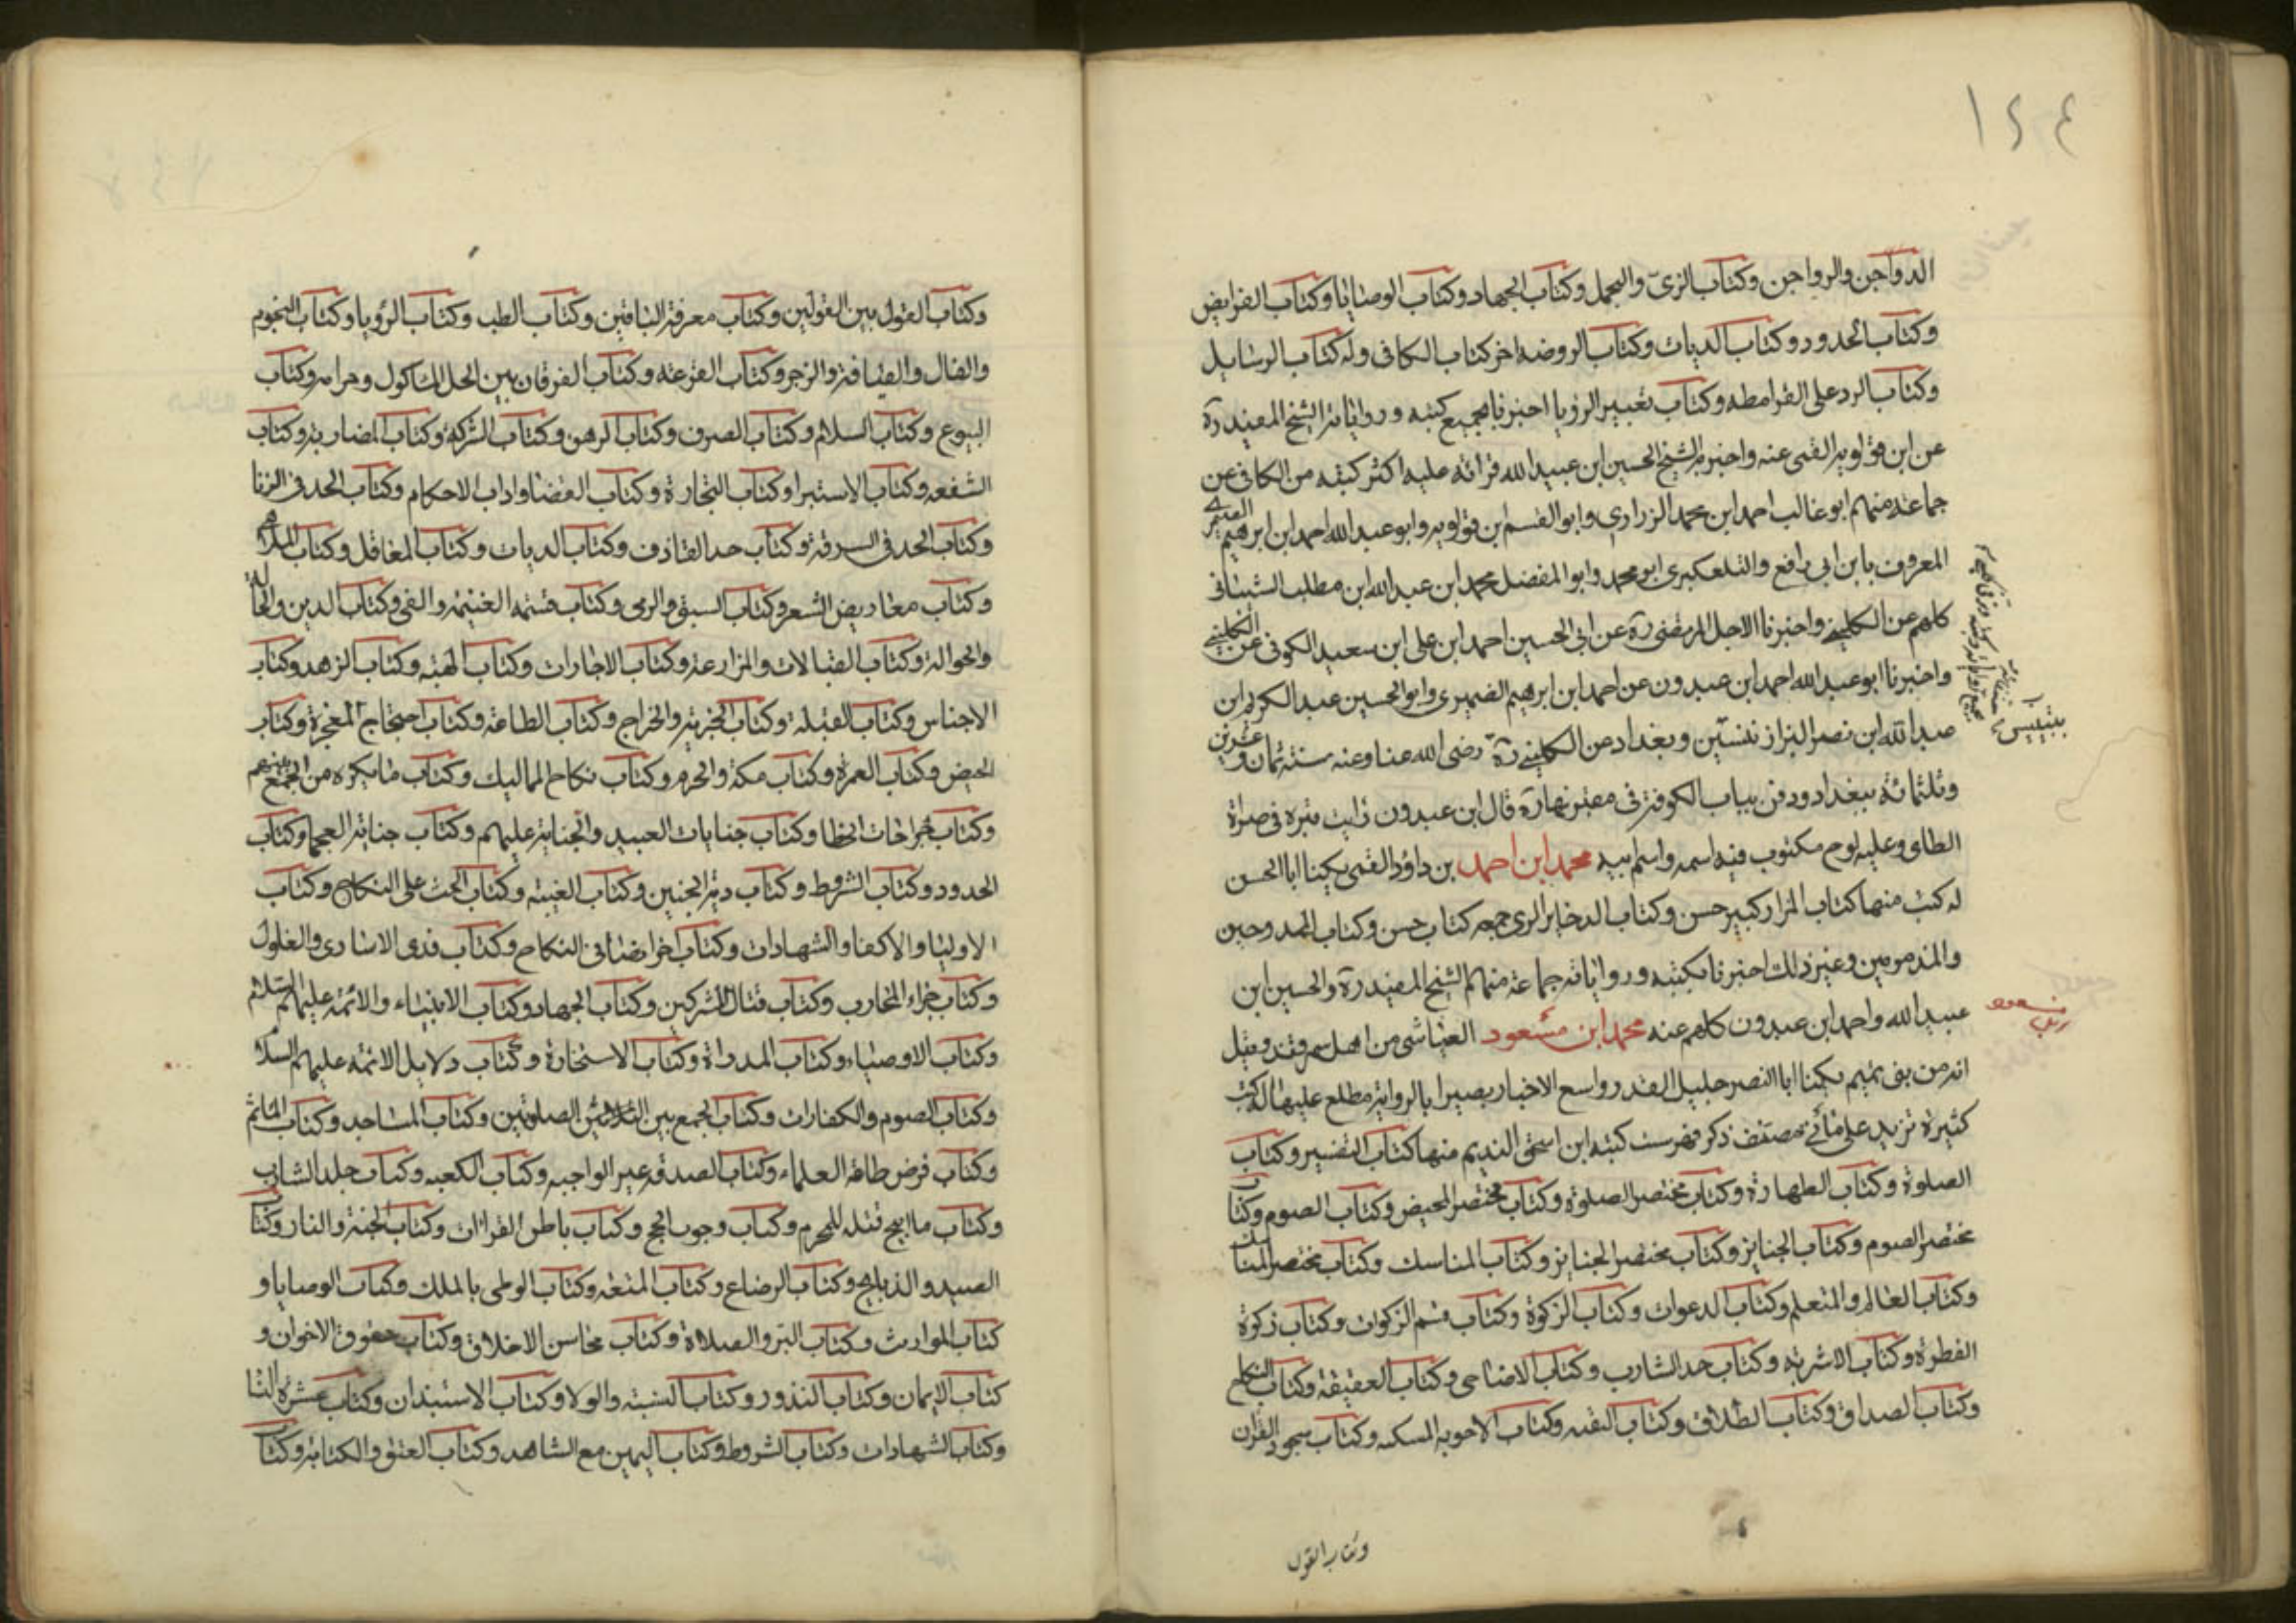 ١٤٤
الدواجن والرواجن وكتاب الزي والتجمل وكتاب الجهاد وكتاب الوصايا وكتاب الفرايض
وكتاب الحدود وكتاب الديات وكتاب الروضه اخر كتاب الكافى وله كتاب الرسايل
وكتاب الرد على القرامطه وكتاب تعبير الرؤيا اخبرنا بجميع كتبه ورواياته الشيخ المفيد ره
عن ابن قولويه القمى عنه واخبرنا الشيخ الحسين ابن عبيد الله قرائة عليه اكثر كتبه من الكافى عن
جماعة منهم ابو غالب احمد ابن محمد الزرارى وابو القسم ابن قولويه وابو عبد الله احمد ابن ابرهيم الصيمرى
المعروف بابن ابى رافع والتلعكبرى ابو محمد وابو المفضل محمد ابن عبد الله ابن مطلب الشيبانى
كلهم عن الكلينى واخبرنا الاجل المرتضى ره عن ابى الحسين احمد ابن على ابن سعيد الكوفى عن الكلينى
واخبرنا ابو عبد الله احمد ابن عبدون عن احمد ابن ابرهيم الصيمرى وابو الحسين عبد الكريم ابن
عبد الله ابن نصر البزاز بتنسين وبغداد عن الكلينى ره رضى الله عنا وعنه سنة ثمان وعشرين
وثلثمائة ببغداد ودفن بباب الكوفة فى مقبرتها ره قال ابن عبدون رايت قبره فى صراة
الطاى وعليه لوح مكتوب فيه اسمه واسم ابيه محمد ابن احمد بن داؤد القمى يكنا ابا الحسن
له كتب منها كتاب المزار كبير حسن وكتاب الذخاير الذى جمعه كتاب حسن وكتاب الممدوحين
والمذمومين وغير ذلك اخبرنا بكتبه ورواياته جماعة منهم الشيخ المفيد ره والحسين ابن
عبيد الله واحمد ابن عبدون كلهم عنه محمد ابن مسعود العياشى من اهل سمرقند وقيل
انه من بنى تميم يكنا ابا النصر جليل القدر واسع الاخبار بصيرا بالرواية مطلع عليها له كتب
كثيرة تزيد على مائتى مصنف ذكر فهرست كتبه ابن اسحق النديم منها كتاب التفسير وكتاب
الصلوة وكتاب الطهارة وكتاب مختصر الصلوة وكتاب مختصر الحيض وكتاب الصوم وكتاب
مختصر الصوم وكتاب الجنايز وكتاب مختصر الجنايز وكتاب المناسك وكتاب مختصر المناسك
وكتاب العالم والمتعلم وكتاب الدعوات وكتاب الزكوة وكتاب قسم الزكوات وكتاب زكوة
الفطرة وكتاب الاشربة وكتاب حد الشارب وكتاب الاضاحى وكتاب العقيقة وكتاب النكاح
وكتاب الصداق وكتاب الطلاق وكتاب التقيه وكتاب الاجوبه المسكته وكتاب سجود القرآن
وكتاب القول
بتنيس
مسعود
وكتاب القول بين القولين وكتاب معرفة الناقلين وكتاب الطب وكتاب الرؤيا وكتاب النجوم
والفال والقيافة والزجر وكتاب القرعه وكتاب الفرقان بين الحل الماكول وحرامه وكتاب
البيوع وكتاب السلام وكتاب الصرف وكتاب الرهن وكتاب الشركة وكتاب المضاربة وكتاب
الشفعه وكتاب الاستبرا وكتاب التجارة وكتاب القضا واداب الاحكام وكتاب الحد فى الزنا
وكتاب الحد فى السرقة وكتاب حد القاذف وكتاب الديات وكتاب المعاقل وكتاب الملاهى
وكتاب معاريض الشعر وكتاب السبق والرمى وكتاب قسمة الغنيمة والفى وكتاب الدين والحمالة
والحوالة وكتاب القبالات والمزارعة وكتاب الاجارات وكتاب الهبه وكتاب الزهد وكتاب
الاجناس وكتاب القبلة وكتاب الجزية والخراج وكتاب الطاعة وكتاب احتجاج المعجزة وكتاب
الحيض وكتاب العمرة وكتاب مكة والحرم وكتاب نكاح المماليك وكتاب ما يكره من الجمع بينهم
وكتاب جراحات الخطا وكتاب جنايات العبيد والجناية عليهم وكتاب جناية العجما وكتاب
الحدود وكتاب الشروط وكتاب دية الجنين وكتاب الغيبه وكتاب الحث على النكاح وكتاب
الاوليا والاكفا والشهادات وكتاب اخر ايضا فى النكاح وكتاب فدى الاسارى والغلول
وكتاب جزاء المحارب وكتاب قتال المشركين وكتاب الجهاد وكتاب الانبياء والائمة عليهم السلام
وكتاب الاوصياء وكتاب المدراة وكتاب الاستخارة وكتاب دلايل الائمة عليهم السلام
وكتاب الصوم والكفارات وكتاب الجمع بين الصلوتين وكتاب المساجد وكتاب الماتم
وكتاب فرض طاعة العلماء وكتاب الصدقه غير الواجبه وكتاب الكعبه وكتاب جلد الشارب
وكتاب ما ابيح قتله للمحرم وكتاب وجوب الحج وكتاب باطن القرآن وكتاب الجنة والنار وكتاب
الصيد والذبايح وكتاب الرضاع وكتاب المتعه وكتاب الوطى بالملك وكتاب الوصايا و
كتاب المواريث وكتاب البر والصلاة وكتاب محاسن الاخلاق وكتاب حقوق الاخوان و
كتاب الايمان وكتاب النذور وكتاب النسبة والولا وكتاب الاستيذان وكتاب عشرة النسا
وكتاب الشهادات وكتاب الشروط وكتاب اليمين مع الشاهد وكتاب العتق والكتابة وكتاب